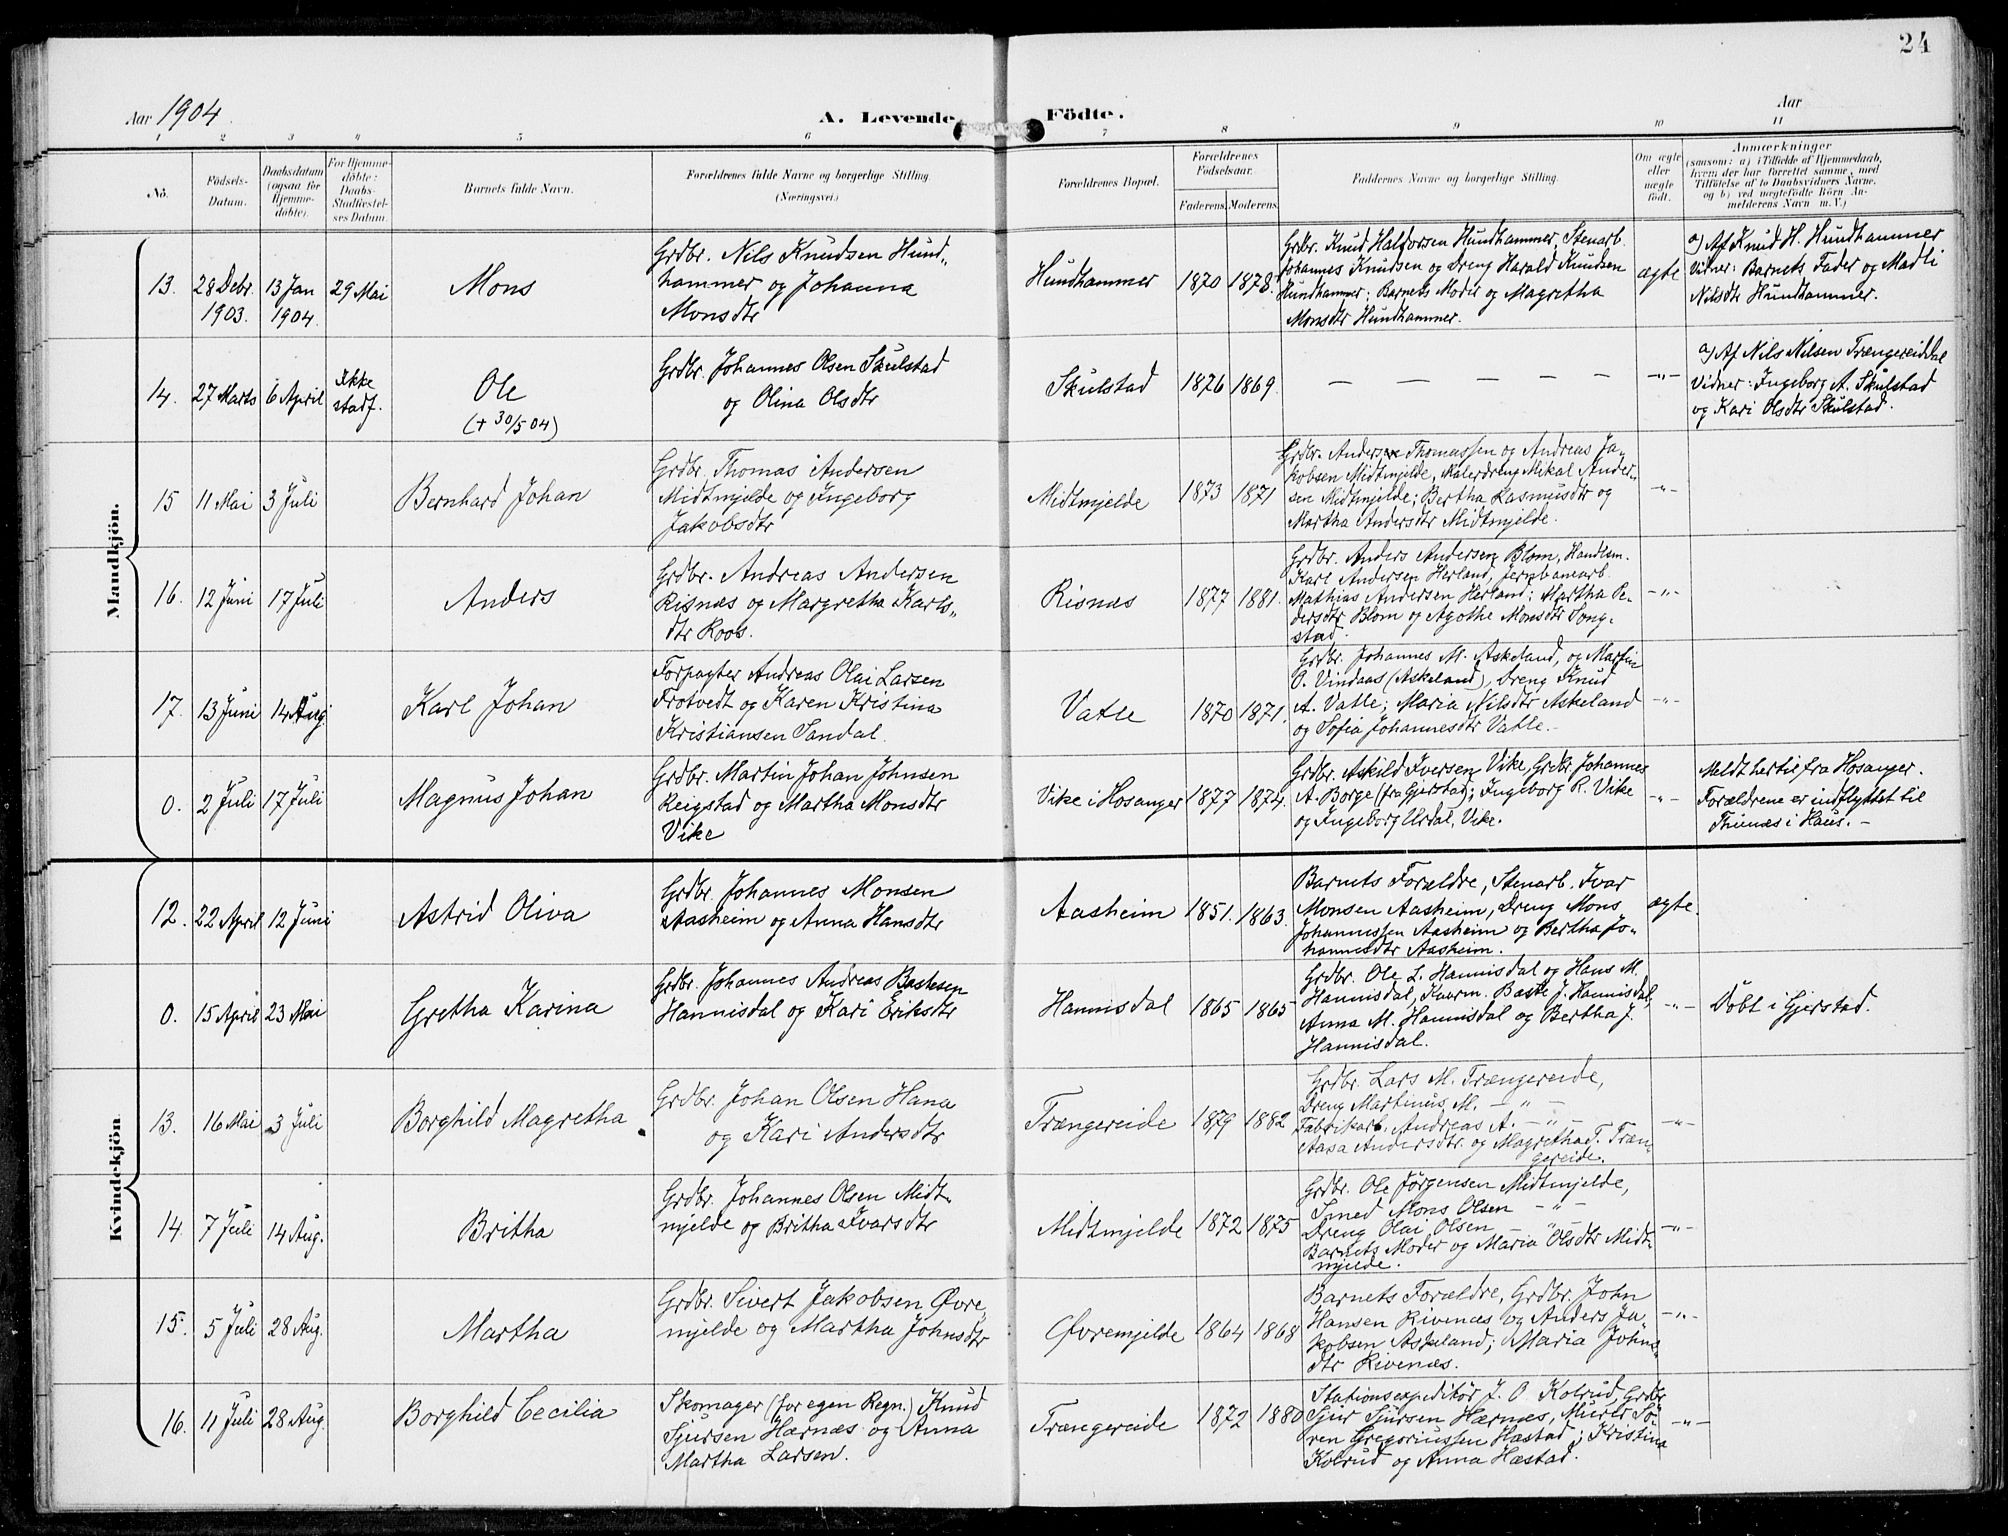 24
Aar 1904.
A. Levende Födte.
Aar
1 2 3 4 5 6 7 8 9 10 11
No.
Födsels-
Datum.
Daabsdatum
(ogsaa for
Hjemme-
döbte).
For Hjemme-
döbte:
Daabs-
Stadfæstel-
ses Datum.
Barnets fulde Navn.
Forældrenes fulde Navne og borgerlige Stilling.
(Næringsvei.)
Forældrenes Bopæl.
Forældrenes
Födselsaar.
Faderens. Moderens.
Faddernes Navne og borgerlige Stilling.
Om ægte
eller
uægte
födt.
Anmærkninger
(saasom: a) i Tilfælde af Hjemmedaab,
hvem der har forrettet samme, med
Tilföielse af to Daabsvidners Navne,
og b) ved uægtefödte Börn An-
melderens Navn m. V.)
Mandkjön.
13.
28 Debr.
1903.
13 Jan
1904.
29 Mai
Mons
Grdbr. Nils Knudsen Hund-
hammer og Johanna
Monsdtr
Hundhammer
1870
1878.
Grdbr. Knud Haldorsen Hundhammer, Stenarb.
Johannes Knudsen og Dreng Harald Knudsen
Hundhammer; Barnets Moder og Magretha
Monsdtr Hundhammer.
ægte
a) Af Knud H. Hundhammer
Vidner: Barnets Fader og Madli
Nilsdtr Hundhammer.
14.
27 Marts
6 April
Ikke
stadf.
Ole
(+ 30/5 04)
Grdbr. Johannes Olsen Skulstad
og Olina Olsdtr
Skulstad
1876
1869.
— — — — — —
-"-
a) Af Nils Nilsen Trængereiddal
Vidner: Ingeborg A. Skulstad
og Kari Olsdtr Skulstad.
15
11 Mai
3 Juli
Bernhard Johan
Grdbr. Thomas Andersen
Midtmjelde og Ingeborg
Jakobsdtr
Midtmjelde
1873
1871
Grdbr. Anders Thomassen og Andreas Ja-
kobsen Midtmjelde, Malerdreng Mikal Ander-
sen Midtmjelde; Bertha Rasmusdtr og
Martha Andersdtr Midtmjelde.
-"-
16.
12 Juni
17 Juli
Anders
Grdbr. Andreas Andersen
Risnæs og Margretha Karls-
dtr Roos.
Risnæs
1877
1881.
Grdbr. Anders Andersen Blom, Handlsm.
Karl Andersen Herland, Jernbanearb.
Mathias Andersen Herland; Martha Pe-
dersdtr Blom og Agothe Monsdtr Song-
stad.
-"-
17.
13 Juni
14 Aug.
Karl Johan
Forpagter Andreas Olai Larsen
Trotvedt og Karen Kristina
Kristiansen Sandal.
Vatle
1870
1871.
Grdbr. Johannes M. Askeland, og Martin
O. Vindaas (Askeland), Dreng Knud
A. Vatle; Maria Nilsdtr Askeland
og Sofia Johannesdtr Vatle.-
-"-
0.
2 Juli
17 Juli
Magnus Johan
Grdbr. Martin Johan Johnsen
Reigstad og Martha Monsdtr
Vike
Vike i Hosanger
1877
1874.
Grdbr. Askild Iversen Vike, Grdbr Johannes
A. Borge (fra Gjerstad); Ingeborg R. Vike
og Ingeborg Urdal, Vike.
-"-
Meldt hertil fra Hosanger.
Forældrene er indflyttet til
i Haus.-
Kvindekjön
12.
22 April
12 Juni
Astrid Oliva
Grdbr. Johannes Monsen
Aasheim og Anna Hansdtr
Aasheim
1851.
1863.
Barnets Forældre, Stenarb. Ivar
Monsen Aasheim, Dreng Mons
Johannessen Aasheim og Bertha Jo-
hannesdtr Aasheim.
ægte.
0.
15 April
23 Mai
Gretha Karina
Grdbr. Johannes Andreas Bastesen
Hannisdal og Kari Eriksdtr
Hannisdal
1865
1865
Grdbr. Ole L. Hannisdal og Hans M.
Hannisdal, Kaarm. Baste J. Hannisdal,
Anna M. Hannisdal og Bertha J.
Hannisdal.
-"-
Döbt i Gjerstad.
13.
16 Mai
3 Juli
Borghild Magretha
Grdbr. Johan Olsen Hana
og Kari Andersdtr
Trængereide
1879
1882
Grdbr. Lars M. Trængereide,
Dreng Martinus M. -"-
Fabrikarb. Andreas A. -"-
Aasa Andersdtr og Magretha T. Træn-
gereide.
-"-
14.
7 Juli
14 Aug.
Britha
Grdbr. Johannes Olsen Midt-
mjelde og Britha Ivarsdtr
Midtmjelde
1872
1875
Grdbr. Ole Jörgensen Midtmjelde,
Smed Mons Olsen -"-
Dreng Olai Olsen -"-
Barnets Moder og Maria Olsdtr Midt-
mjelde.
-"-
15.
5 Juli
28 Aug.
Martha
Grdbr. Sivert Jakobsen Øvre-
mjelde og Martha Johnsdtr
Øvremjelde
1864
1868
Barnets Forældre, Grdbr. John
Hansen Rivenæs og Anders Ja-
kobsen Askeland; Maria Johns-
dtr Rivenæs.
-"-
16.
11 Juli
28 Aug.
Borghild Cecilia
Skomager (for egen Regn.) Knud
Sjursen Hærnæs og Anna
Martha Larsen.
Trængereide
1872
1880
Stationsexpeditör J. O. Kolrud, Grdbr.
Sjur Sjursen Hærnæs, Murer Sö-
ren Gregoriussen Hæstad; Kristina
Kolrud og Anna Hæstad.
-"-